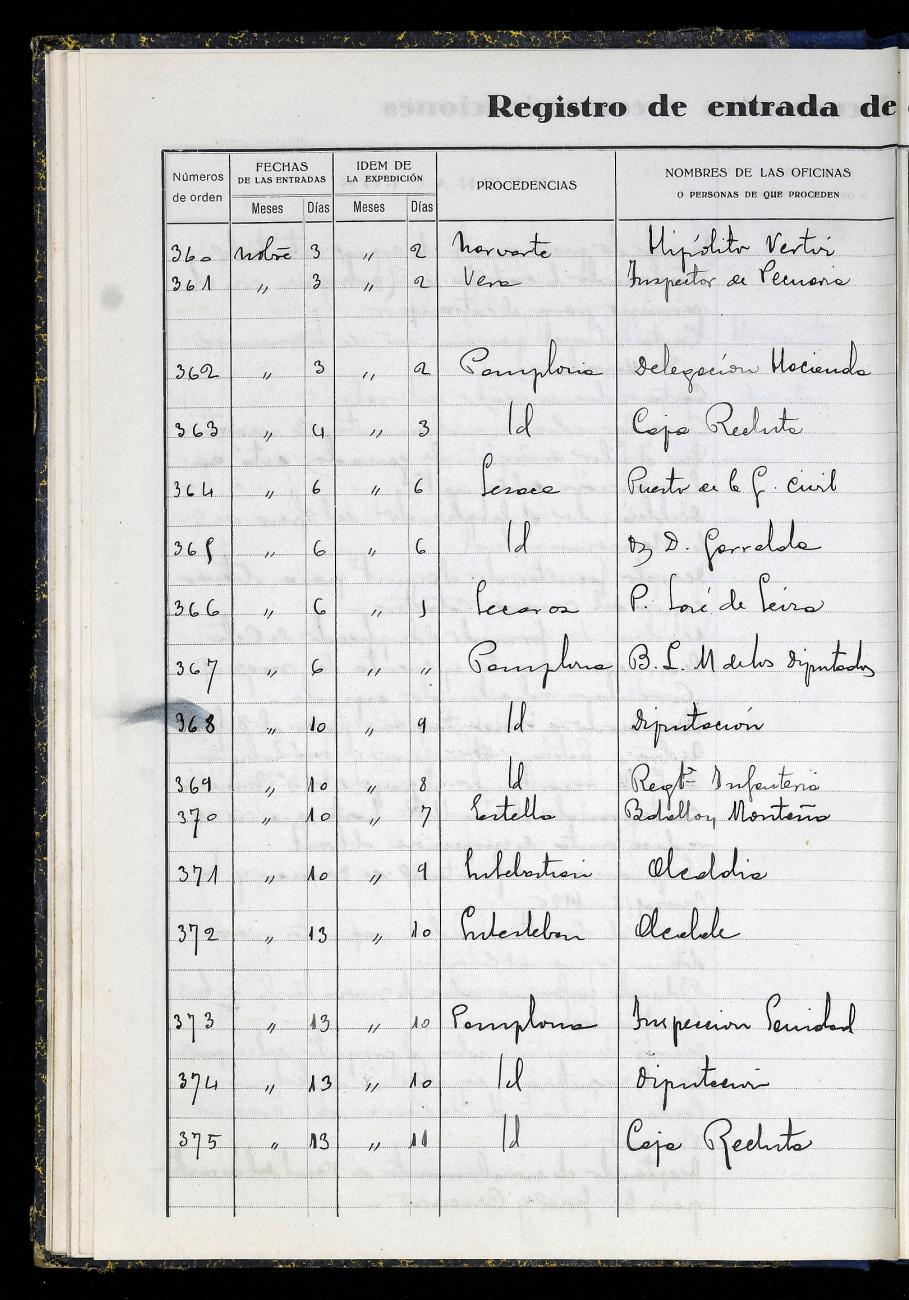 Registro de entrada de
Números de orden
FECHAS DE LAS ENTRADAS
IDEM DE LA EXPEDICIÓN
PROCEDENCIAS
NOMBRES DE LAS OFICINAS O PERSONAS DE QUE PROCEDEN
Meses Días Meses Días
360 Nobre 3 " 2 Narvarte Hipólito Vertiz
361 " 3 " 2 Vera Inspector de Pecuaria
362 " 3 " 2 Pamplona Delegación Hacienda
363 " 4 " 3 Id Caja Recluta
364 " 6 " 6 Lesaca Puesto de la G. Civil
365 " 6 " 6 Id D. Garralda
366 " 6 " 1 Lecaroz P. José de
367 " 6 " " Pamplona B. L. M de los Diputados
368 " 10 " 9 Id Diputación
369 " 10 " 8 Id Regto Infanteria
370 " 10 " 7 Estella Batallon Montaña
371 " 10 " 9 Alcaldia
372 " 13 " 10 Alcalde
373 " 13 " 10 Pamplona Inspeccion Sanidad
374 " 13 " 10 Id Diputacion
375 " 13 " 11 Id Caja Recluta